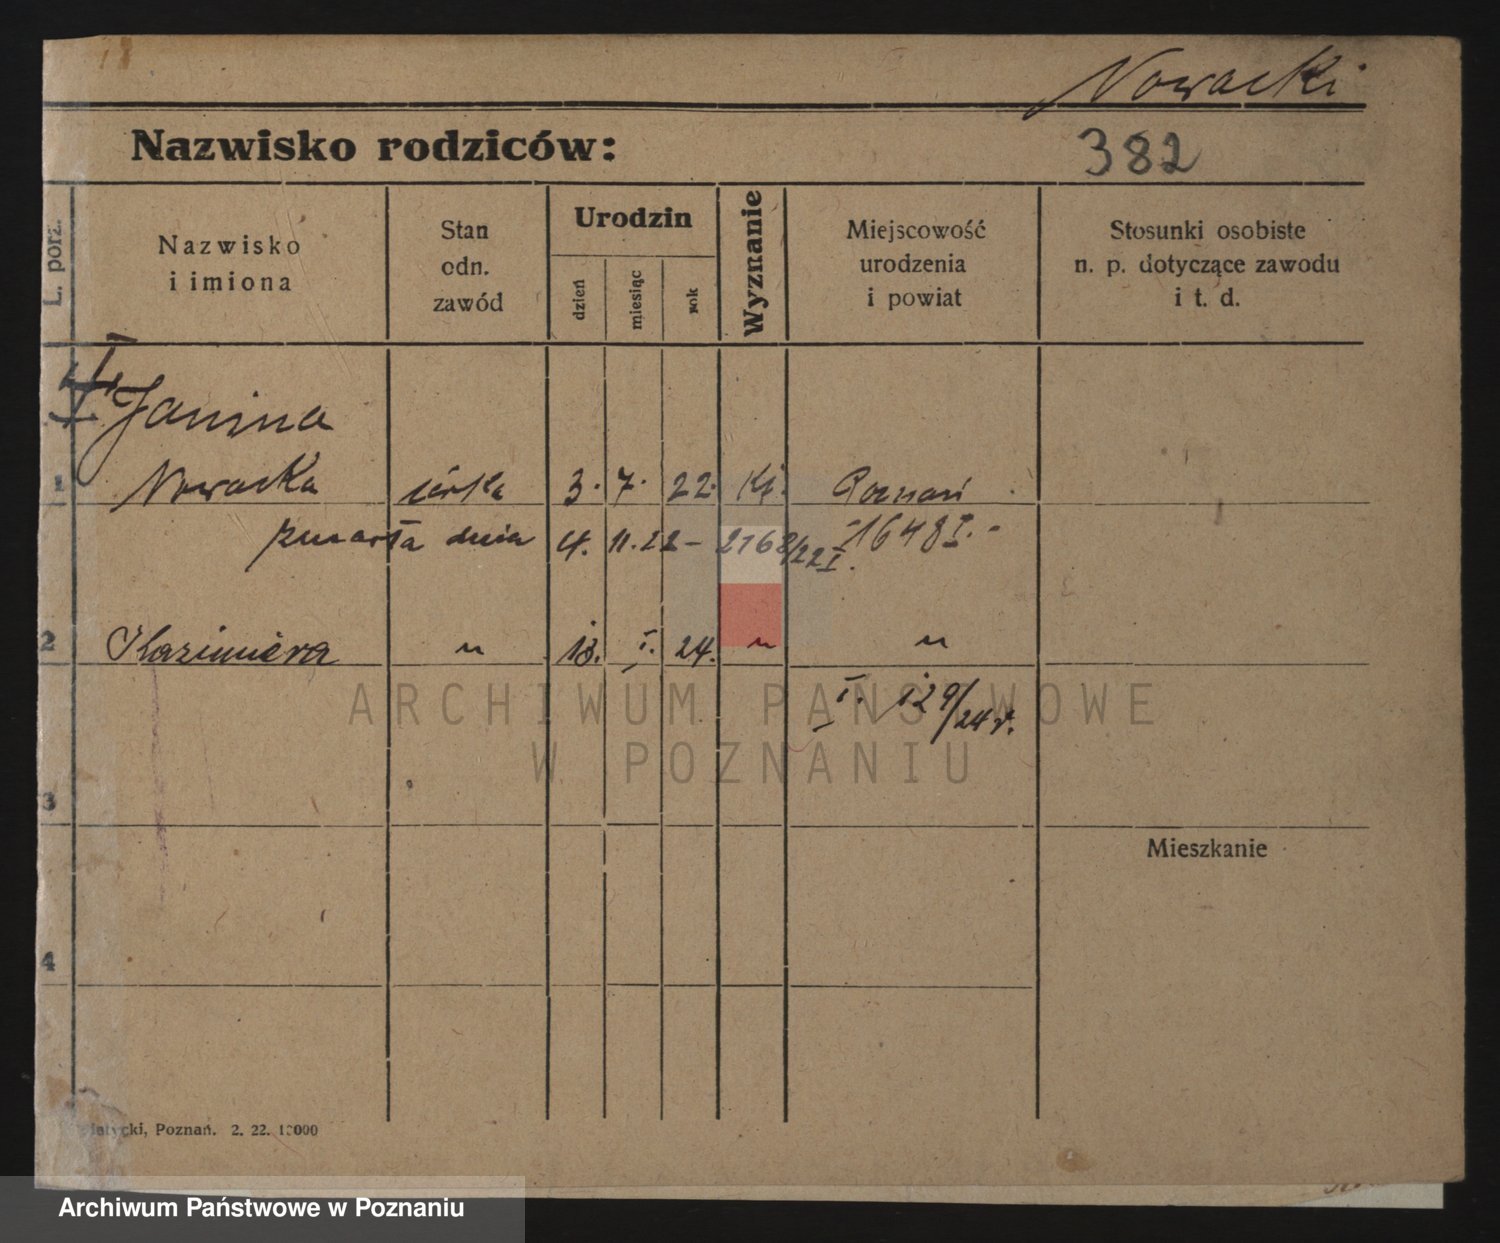 Nowacki
Nazwisko rodziców:
382
L. porz.
Nazwisko
i imiona
Stan
odn.
zawód
Urodzin
dzień
miesiąc
rok
Wyznanie
Miejscowość
urodzenia
i powiat
Stosunki osobiste
n. p. dotyczące zawodu
i t. d.
Janina
1 Nowacka córka 3. 7. 22. Kt. Poznań
zmarła dnia 4. 11. 22 – 2768/22 I. 1648 I. -
2 Kazimiera " 13. I. 24. " "
I. 129/24 r.
ARCHIWUM PAŃSTWOWE
W POZNANIU
3
Mieszkanie
4
Poznań. 2. 22. 10000
Archiwum Państwowe w Poznaniu